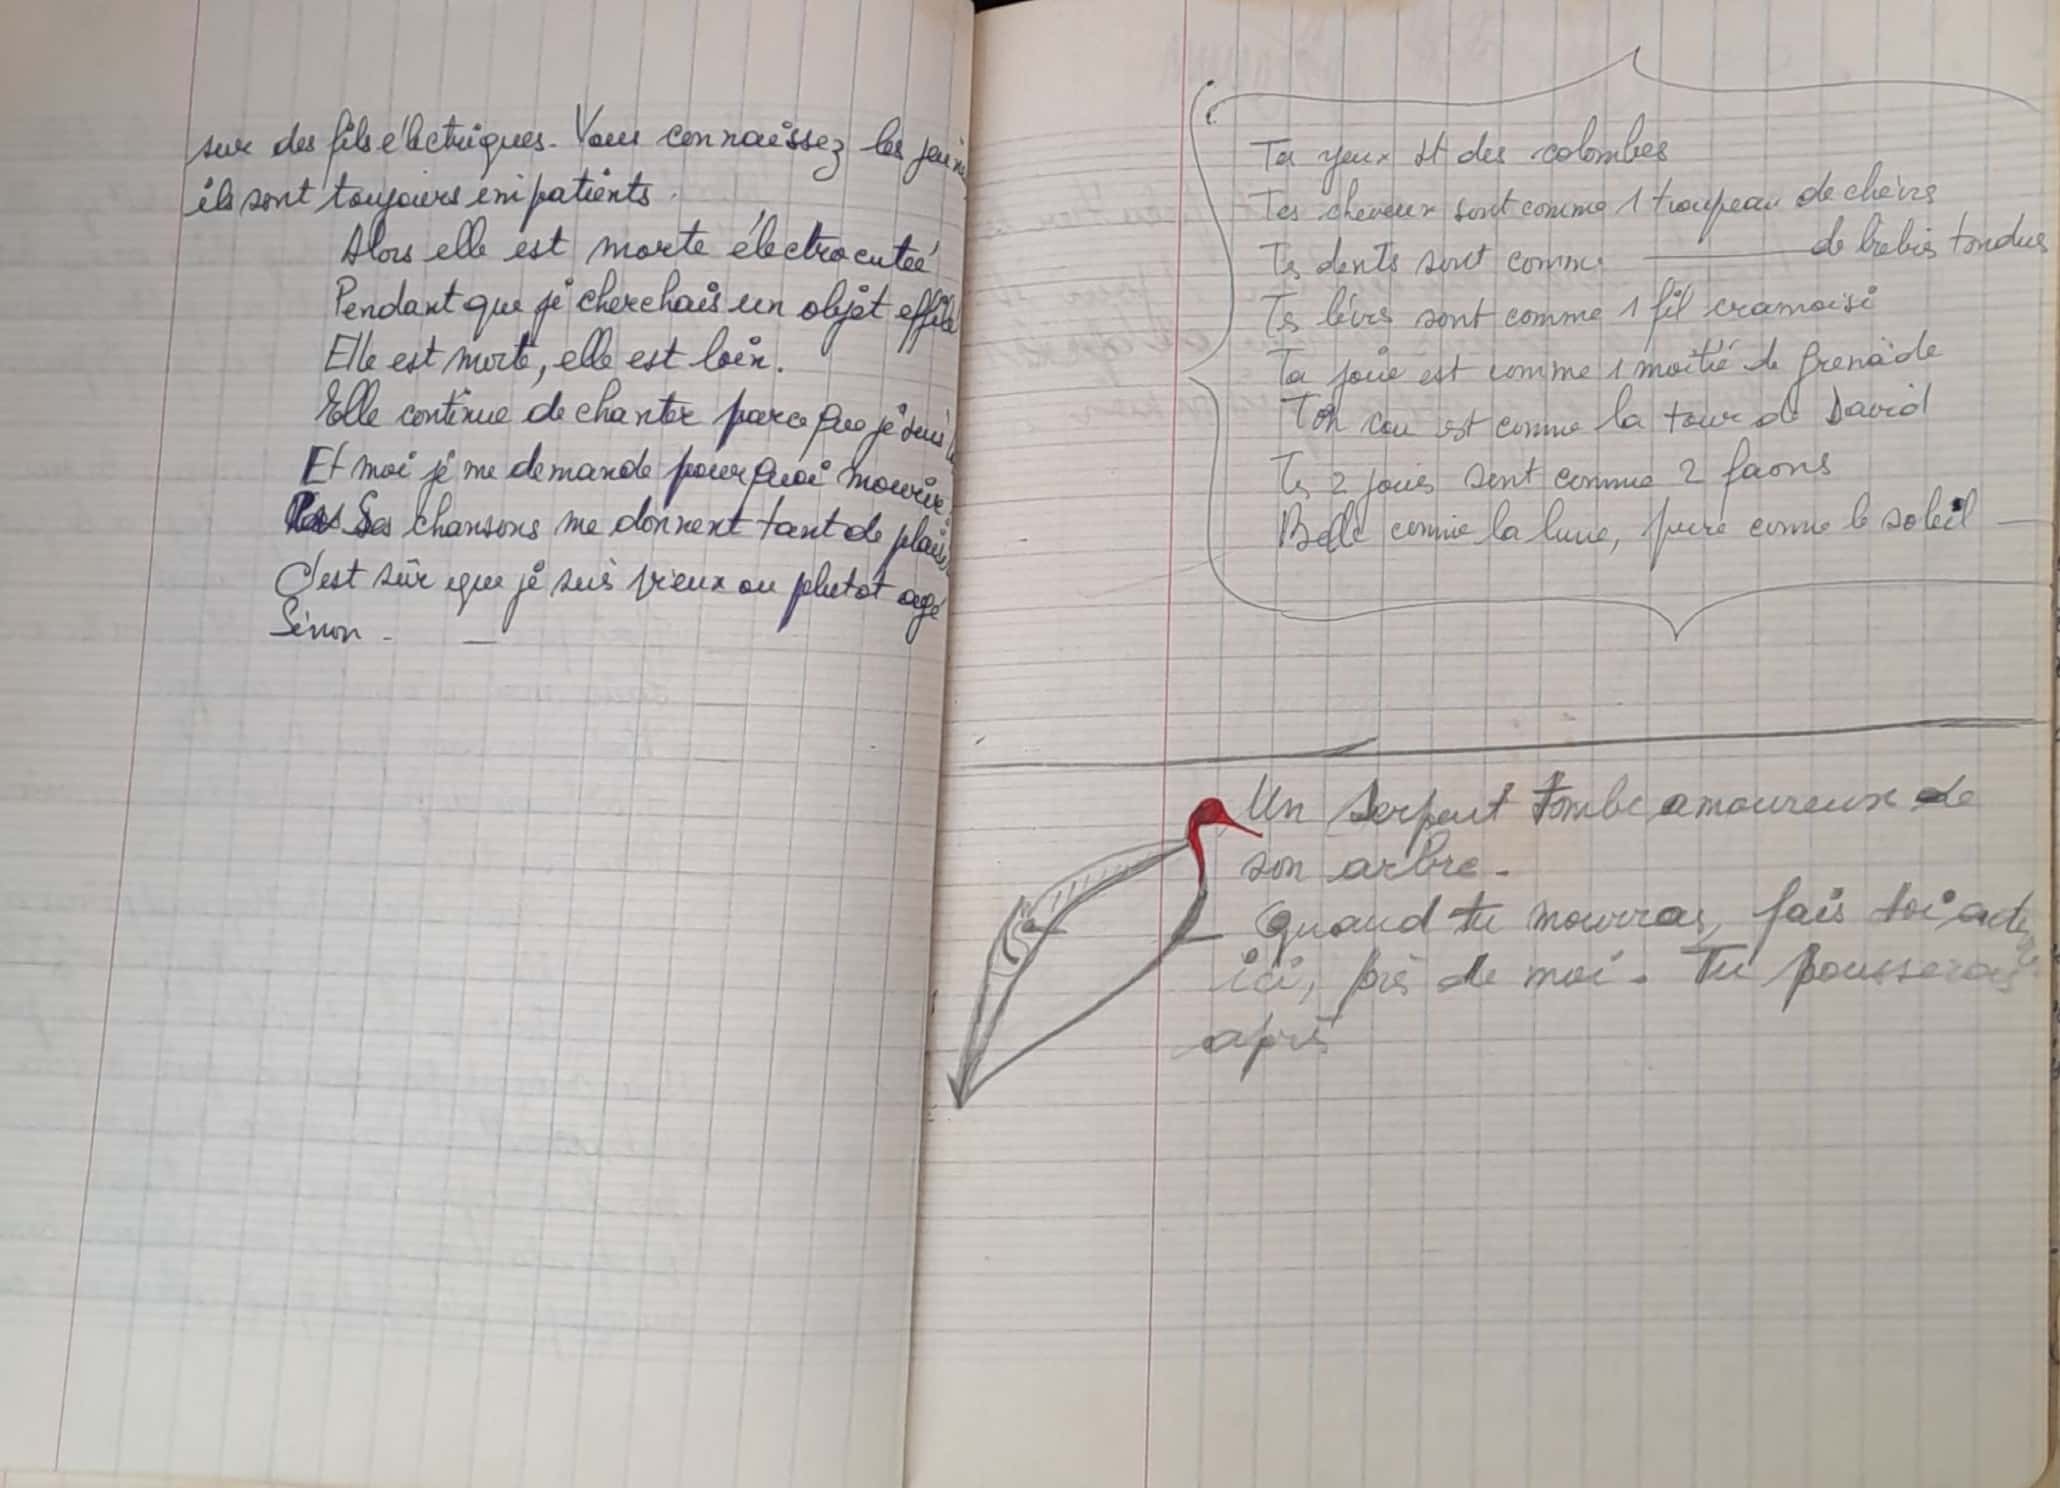 sur des fils électriques. Vous connaissez les jeunes
ils sont toujours impatients.
Alors elle est morte électrocutée
Pendant que je cherchais un objet effilé
Elle est morte, elle est loin.
Elle continue de chanter parce que je suis
Et moi je me demande pourquoi mourir
Ses chansons me donnent tant de plaisir
C'est sûr que je suis vieux ou plutot agé
Sinon. —
Ta yeux st des colombes
Tes cheveux sont comme 1 troupeau de chèvrs
Ts dents sont comme ——— de brebis tondues
Ts lèvrs sont comme 1 fil cramoisi
Ta joue est comme 1 moitié de grenade
Ton cou est comme la tour de David
Ts 2 joues sont comme 2 faons
Belle comme la lune, pure comme le soleil —
Un serpent tombe amoureux de
son arbre.
— Quand tu mourras, fais toi
ici, près de moi. Tu pousseras
après